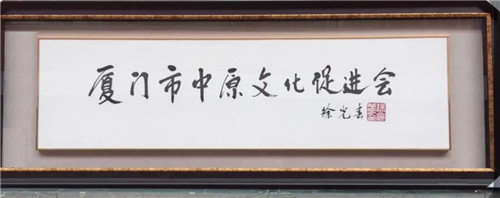 厦门市中原文化促进会
徐光春